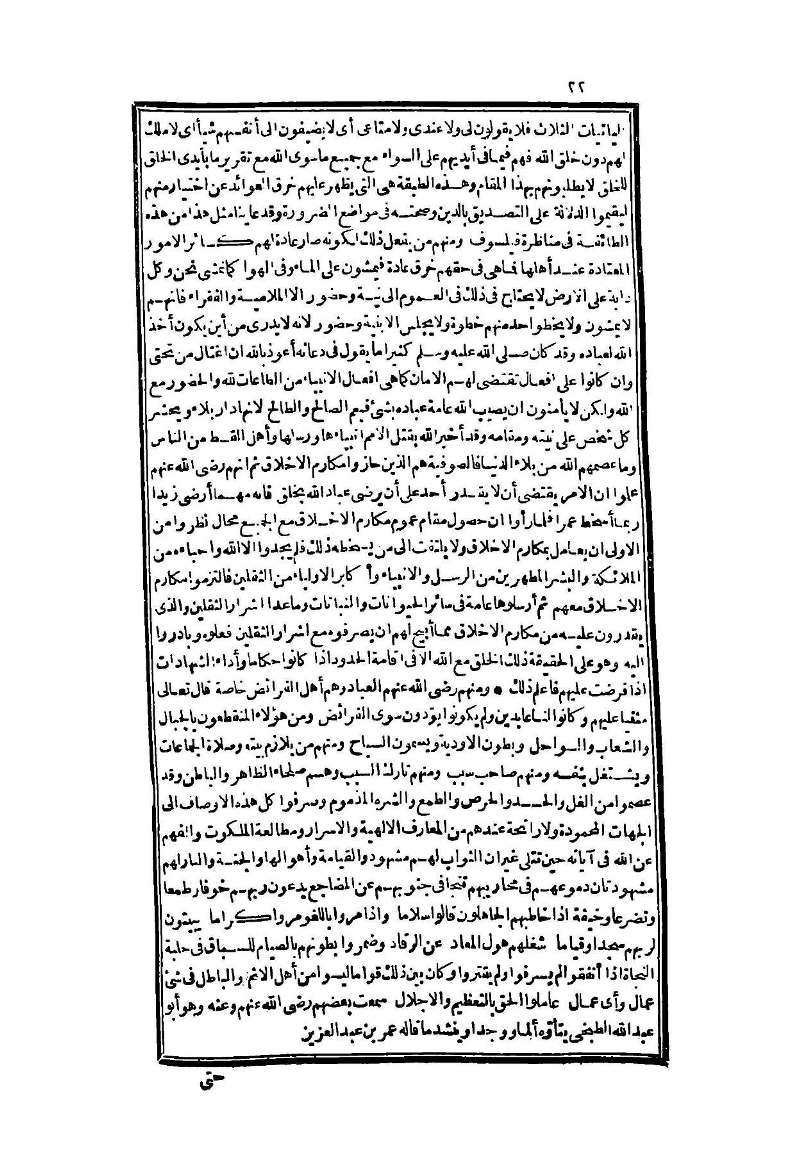 ٢٢
الياآت الثلاث فلا يقولون لى ولا عندى ولا متاعى أى لا يضيفون الى أنفسهم شيأ أى لا ملك
لهم دون خلق الله فهم فيما فى أيديهم على السواء مع جميع ماسوى الله مع تقرير ما بأيدى الخلق
للخلق لا يطلبونهم بهذا المقام وهذه الطبقة هى التى يظهر عليهم خرق العوائد عن اختيار منهم
ليقيموا الدلالة على التصديق بالدين وصحته فى مواضع الضرورة وقد عاينا مثل هذا من هذه
الطائفة فى مناظرة فيلسوف ومنهم من يفعل ذلك لكونه صار عادة لهم كسائر الامور
المعتادة عند أهلها فما هى فى حقهم خرق عادة فيمشون على الماء وفى الهوا كما نمشى نحن وكل
دابة على الارض لا يحتاج فى ذلك فى العموم الى نية وحضور الا الملامية والفقراء فانهم
لا يمشون ولا يخطو احد منهم خطوة ولا يجلس الا بنية وحضور لانه لا يدرى من أين يكون أخذ
الله لعباده وقد كان صلى الله عليه وسلم كثيرا ما يقول فى دعائه أعوذ بالله ان اغتال من تحتى
وان كانوا على افعال تقتضى لهم الامان كما هى افعال الانبياء من الطاعات لله والحضور مع
الله ولكن لا يأمنون ان يصيب الله عامة عباده بشئ فيعم الصالح والطالح لانها دار بلاء ويحشر
كل شخص على نيته ومقامه وقد أخبر الله بقتل الامم انبياءها ورسلها وأهل القسط من الناس
وما عصمهم الله من بلاء الدنيا فالصوفية هم الذين حازوا مكارم الاخلاق ثم انهم رضى الله عنهم
علموا ان الامر يقتضى أن لا يقدر أحد على أن يرضى عباد الله بخلق فانه مهما أرضى زيدا
ربما أسخط عمرا فلما رأوا ان حصول مقام عموم مكارم الاخلاق مع الجميع محال نظروا من
الاولى ان يعامل بمكارم الاخلاق ولا يلتفت الى من يسخطه ذلك فلم يجدوا الا الله واحباءه من
الملائكة والبشر المطهرين من الرسل والانبياء وأكابر الاولياء من الثقلين فالتزموا مكارم
الاخلاق معهم ثم أرسلوها عامة فى سائر الحيوانات والنباتات وما عدا اشرار الثقلين والذى
يقدرون عليه من مكارم الاخلاق مما أبيح لهم ان يصرفوه مع اشرار الثقلين فعلوه وبادروا
اليه وهو على الحقيقة ذلك الخلق مع الله الا فى اقامة الحدود اذا كانوا حكاما وأداء الشهادات
اذا فرضت عليهم فاعلم ذلك * ومنهم رضى الله عنهم العباد وهم أهل الفرائض خاصة قال تعالى
مثنيا عليهم وكانوا لنا عابدين ولم يكونوا يؤدون سوى الفرائض ومن هؤلاء المنقطعون بالجبال
والشعاب والسواحل وبطون الاودية ويسمون السياح ومنهم من يلازم بيته وصلاة الجماعات
ويشتغل بنفسه ومنهم صاحب سبب ومنهم تارك السبب وهم صلحاء الظاهر والباطن وقد
عصموا من الغل والحسد والحرص والطمع والشره المذموم وصرفوا كل هذه الاوصاف الى
الجهات المحمودة ولا رائحة عندهم من المعارف الالهية والاسرار ومطالعة الملكوت والفهم
عن الله فى آياته حين تتلى غير ان الثواب لهم مشهود والقيامة وأهوالها والجنة والنار لهم
مشهودتان دموعهم فى محاريبهم تتجافى جنوبهم عن المضاجع يدعون ربهم خوفا وطمعا
وتضرعا وخيفة اذا خاطبهم الجاهلون قالوا سلاما واذا مروا باللغو مروا كراما يبيتون
لربهم سجدا وقياما شغلهم هول المعاد عن الرقاد وضمروا بطونهم بالصيام للسباق فى حلبة
النجاة اذا أنفقوا لم يسرفوا ولم يقتروا وكان بين ذلك قواما ليسوا من أهل الاثم والباطل فى شئ
عمال وأى عمال عاملوا الحق بالتعظيم والاجلال سمعت بعضهم رضى الله عنهم وعنه وهو أبو
عبد الله الطبخى يتأوه ألما ووجدا وينشد ما قاله عمر بن عبد العزيز
حتى